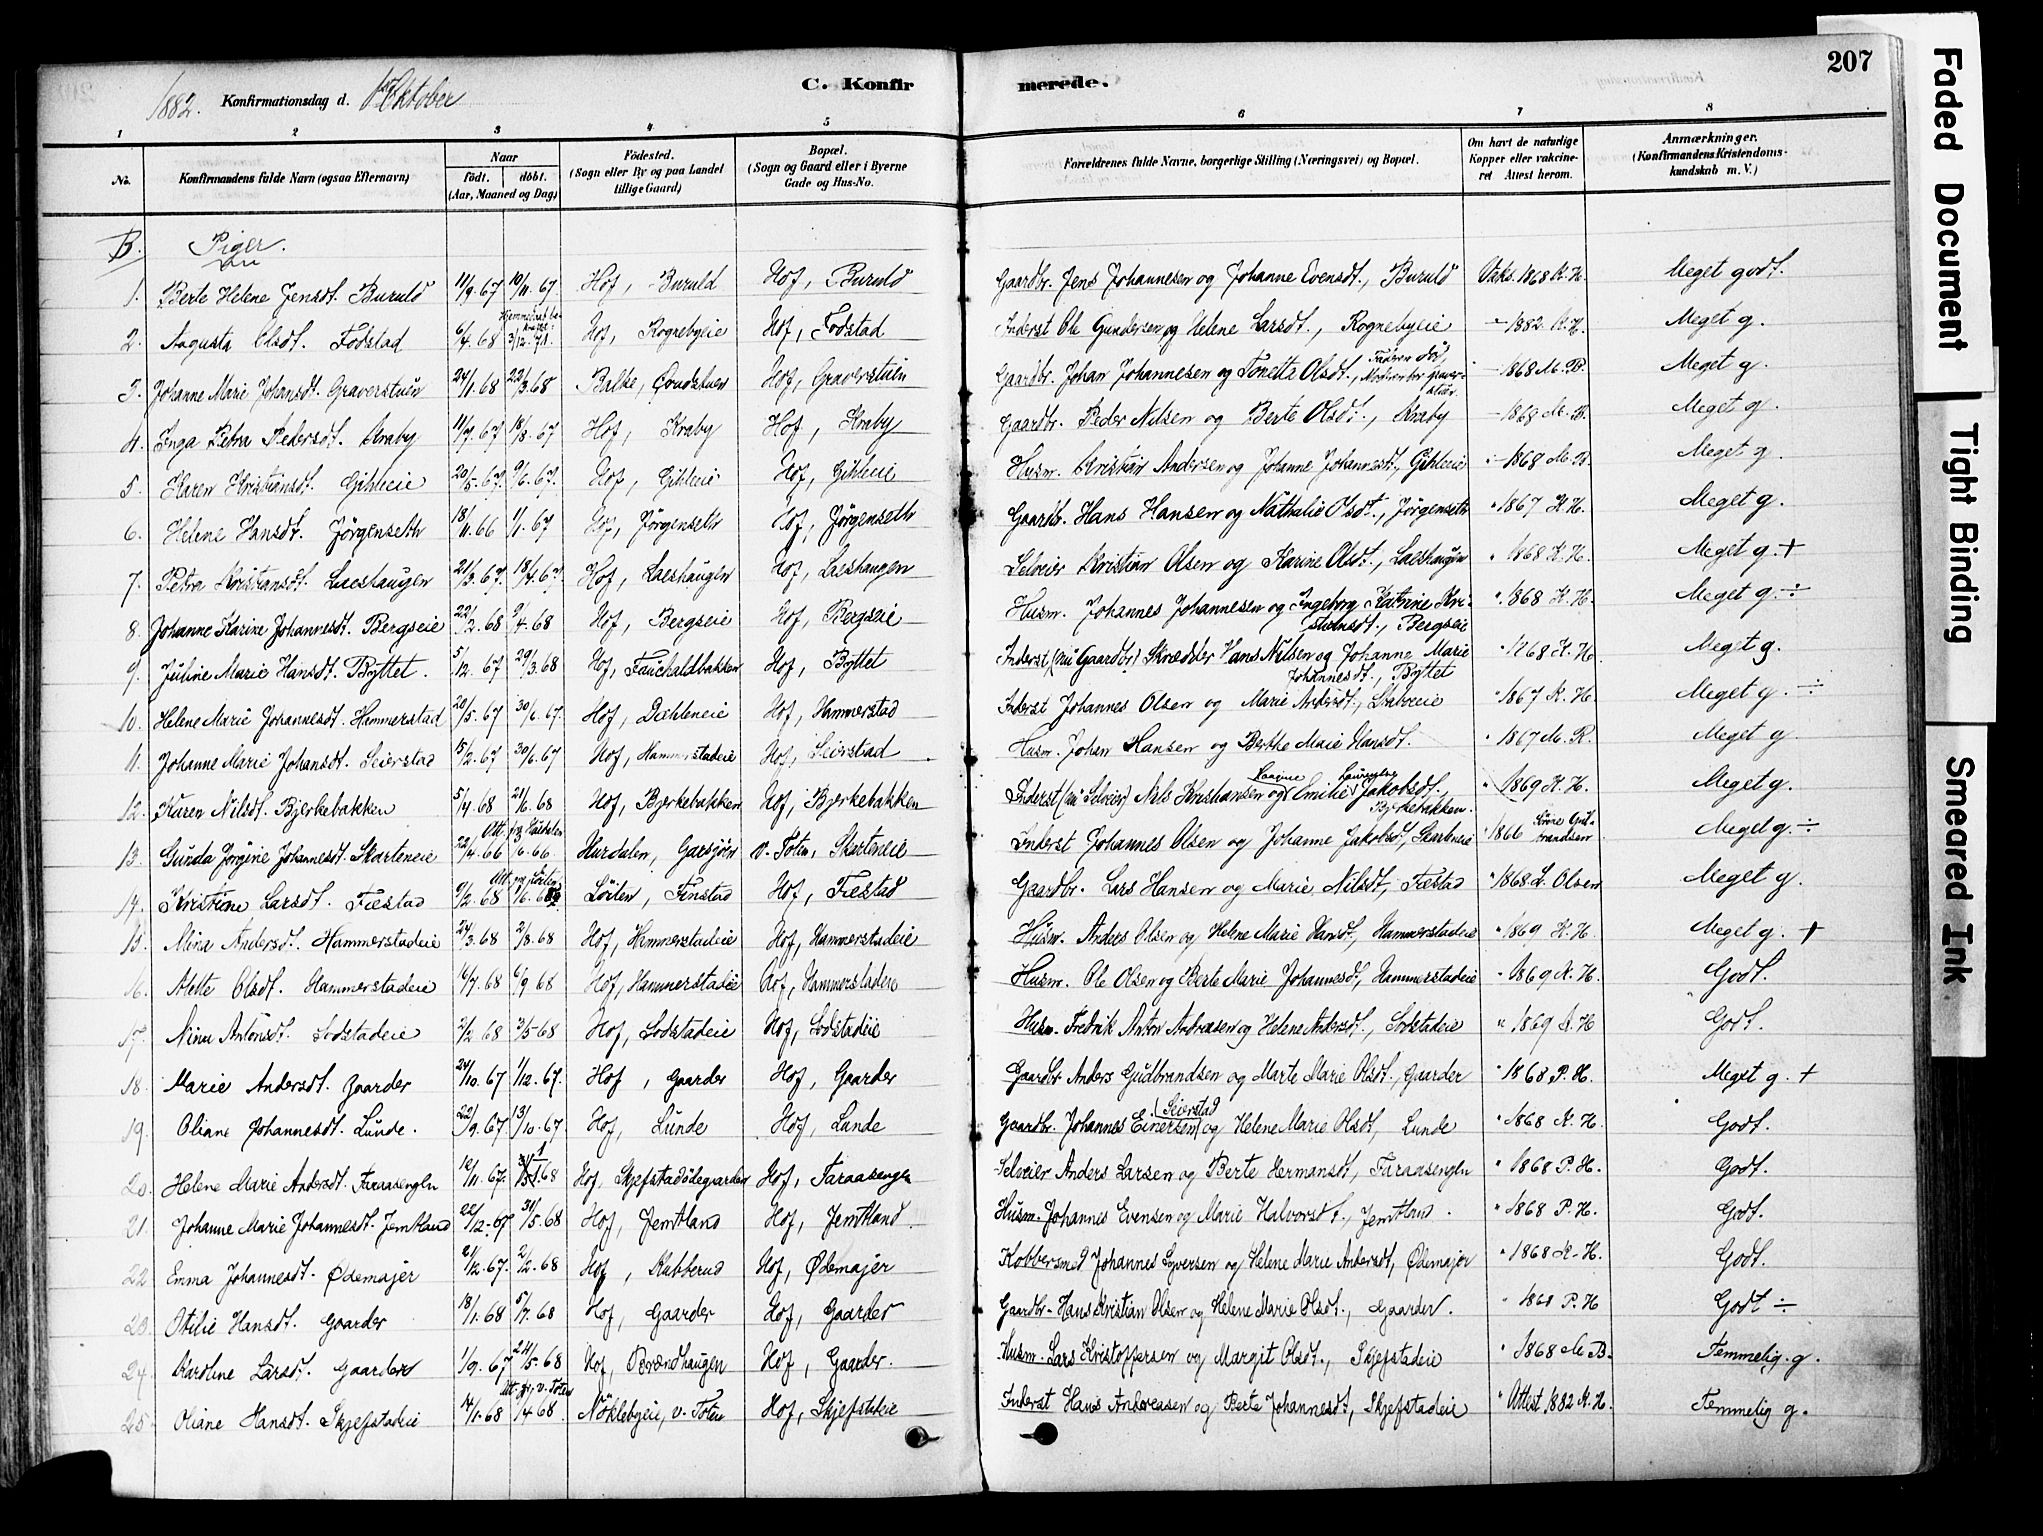 207
1882. Konfirmationsdag d. 1ste Oktober
C. Konfirmerede.
1 2 3 4 5 6 7 8
No. Konfirmandens fulde Navn (ogsaa Efternavn) Naar født. døbt. (Aar, Maaned og Dag) Fødested. (Sogn eller By og paa Landet tillige Gaard) Bopæl. (Sogn og Gaard eller i Byerne Gade og Hus-No. Forældrenes fulde Navne, borgerlige Stilling (Næringsvei) og Bopæl. Om havt de naturlige Kopper eller vakcineret Attest herom. Anmærkninger. (Konfirmandens Kristendomskundskab m. V.)
B. Piger.
1. Berte Helene Jensdt. Buruld 11/9 67 10/11 67. Hof, Buruld Hof, Buruld Gaardbr. Jens Johannesen og Johanne Evensdt., Buruld Vaks. 1868 K. H. Meget godt.
2. Augusta Olsdt. Fodstad 6/4 68 3/12 71. Hof, Rognebyeie Hof, Fodstad Inderst Ole Gundersen og Helene Larsdt., Rognebyeie 1882 K. H. Meget g.
3. Johanne Marie Johansdt. Graverstuen 24/1 68 22/3 68 Balke, Hof, Graverstuen Gaardbr. Johan Johannesen og Tonetta Olsdt., Faderen død, Moderen bor Graverstuen 1868 M. B. Meget g.
4. Inga Petra Pedersdt. Kraby 11/7 67 18/8 67 Hof, Kraby Hof, Kraby Gaardbr. Peder Nilsen og Berte Olsdt., Kraby 1869 M. B. Meget g.
5. Karen Kristiansdt. Gihleie 20/5 67. 9/6 67. Hof, Gihleie Hof, Gihleie Husm. Kristian Andersen og Johanne Johannesdt., Gihleie 1868 M. B. Meget g.
6. Helene Hansdt. Jørgenseth 18/11 66 1/1 67 Hof, Jørgenseth Hof, Jørgenseth Gaardb. Hans Hansen og Nathalie Olsdt., Jørgenseth " 1867 K. H. Meget g.
7. Petra Kristiansdt. Laeshaugen 21/3 67. 18/4 67 Hof, Laeshaugen Hof, Laeshaugen Selveier Kristian Olsen og Karine Olsdt., Laeshaugen " 1868 K. H. Meget g. +
8. Johanne Karine Johannesdt. Bergseie 22/2 68 9/4 68 Hof, Bergseie Hof, Bergseie Husm. Johannes Johannesen og Ingeborg Katrine Kristiansdt., Bergseie " 1868 K. H. Meget g. ÷
9. Juline Marie Hansdt. Byttet. 5/12 67 29/3 68 Hof, Fauchaldbakken Hof, Byttet Inderst (nu Gaardbr) Skrædder Hans Nilsen og Johanne Marie Johannesdt., Byttet " 1868 K. H. Meget g.
10. Helene Marie Johannesdt. Hammerstad 20/5 67 30/6 67. Hof, Dihleneie Hof, Hammerstad Inderst Johannes Olsen og Marie Andersdt., " 1867 K. H. Meget g. ÷
11. Johanne Marie Johansdt. Seierstad 15/2 67 30/6 67 Hof, Hammerstadeie Hof, Seierstad Husm. Johan Hansen og Berthe Marie Hansdt. " 1867 M. R. Meget g.
12. Karen Nilsdt. Bjerkebakken 5/4 68 21/6 68 Hof, Bjerkebakken Hof, Bjerkebakken Inderst (nu Selveier) Nils Kristiansen og Emilie Jakobsdt., Bjerkebakken. " 1869 K. H. Meget g.
13. Gunda Jørgine Johannesdt. Skarteneie 22/4 66 Att. fra Hurdalen /6 66 Hurdalen, Garsjøen v. Toten, Skarteneie Inderst Johannes Olsen og Johanne Jakobsdt., Skarteneie " 1866 Gulbrandsen Meget g. ÷
14. Kristine Larsdt. Fæstad 9/2 68 Att. fra Løiten /6 68 Löiten, Finstad Hof, Fæstad Gaardbr. Lars Hansen og Marie Nilsdt., Fæstad " 1868 L. Olsen Meget g.
15. Mina Andersdt. Hammerstadeie 24/3 68 2/8 68 Hof, Hammerstadeie Hof, Hammerstadeie Husm. Anders Olsen og Helene Marie Hansdt., Hammerstadeie " 1869 K. H. Meget g. +
16. Alette Olsdt. Hammerstadeie 16/7 68 6/9 68 Hof, Hammerstadeie Hof, Hammerstadeie Husm. Ole Olsen og Berte Marie Johannesdt., Hammerstadeie " 1869 K. H. Godt.
17. Nina Antonsdt. Sodstadeie 2/2 68 3/5 68 Hof, Sodstadeie Hof, Sodstadeie Husm. Fredrik Anton Andreasen og Helene Andersdt., Sodstadeie " 1869 K. H Godt.
18. Marie Andersdt. Gaarder 24/10 67 1/12 67. Hof, Gaarder Hof, Gaarder Gaardbr Anders Gudbrandsen og Marte Marie Olsdt., Gaarder " 1868 P. H. Meget g. +
19. Oliane Johannesdt. Lunde. 22/9 67 13/10 67 Hof, Lunde Hof, Lunde Gaardbr. Johannes Einersen (Seierstad) og Helene Marie Olsdt, Lunde " 1868 K. H. Godt.
20. Helene Marie Andersdt. Faraasengen 16/11 67. 68 Hof, Skjefstadødegaarden Hof, Faraasengen Selveier Anders Larsen og Berte Hermansdt., Faraasengen " 1868 P. H. Godt.
21. Johanne Marie Johannesdt. Jemtland 22/12 67 31/5 68 Hof, Jemtland Hof, Jemtland. Husm. Johannes Evensen og Marie Halvorsdt., Jemtland. " 1868 P. H. Godt.
22 Emma Johannesdt. Ødemajer /12 67. 2/2 68 Hof, Kubberud Hof, Ødemajer Kobbersmed Johannes Syversen og Helene Marie Andersdt, Ødemajer " 1868 K. H. Godt.
23. Otilie Hansdt. Gaarder 18/1 68 5/7 68 Hof, Gaarder Hof, Gaarder Gaardbr. Hans Kristian Olsen og Helene Marie Olsdt., Gaarder. " 1868 P. H Godt ÷
24. Karoline Larsdt. Gaarder 1/9 67 24/5 68 Hof, Brændhaugen Hof, Gaarder. Husm. Lars Kristoffersen og Margit Olsdt., Skjefstadeie " 1868 M. B. Temmelig g.
25. Oliane Hansdt. Skjefstadeie 14/1 68 Att. fra v. Toten /4 68 Nöklebyeie, v. Toten Hof, Skjefstadeie Inderst Hans Andreasen og Berte Johannesdt., Skjefstadeie " Attest 1882 K. H. Temmelig g.
Faded Document
Tight Binding
Smeared Ink